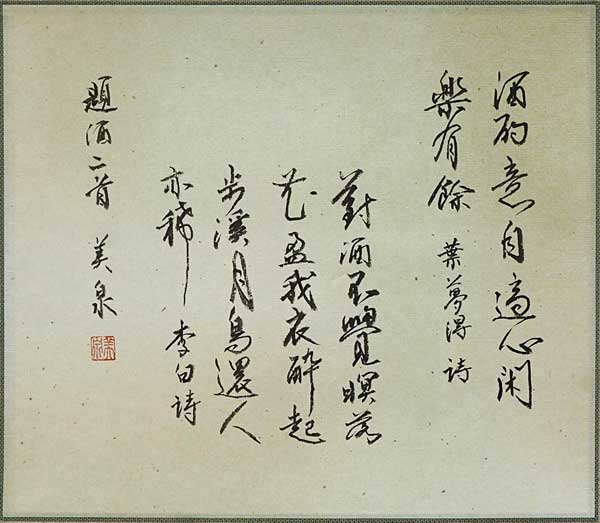 酒酌意自適心闲
樂有餘 葉夢得 詩
對酒不覺暝落
花盈我衣醉起
步溪月鳥還人
亦稀 李白詩
題酒二首 美泉
美泉